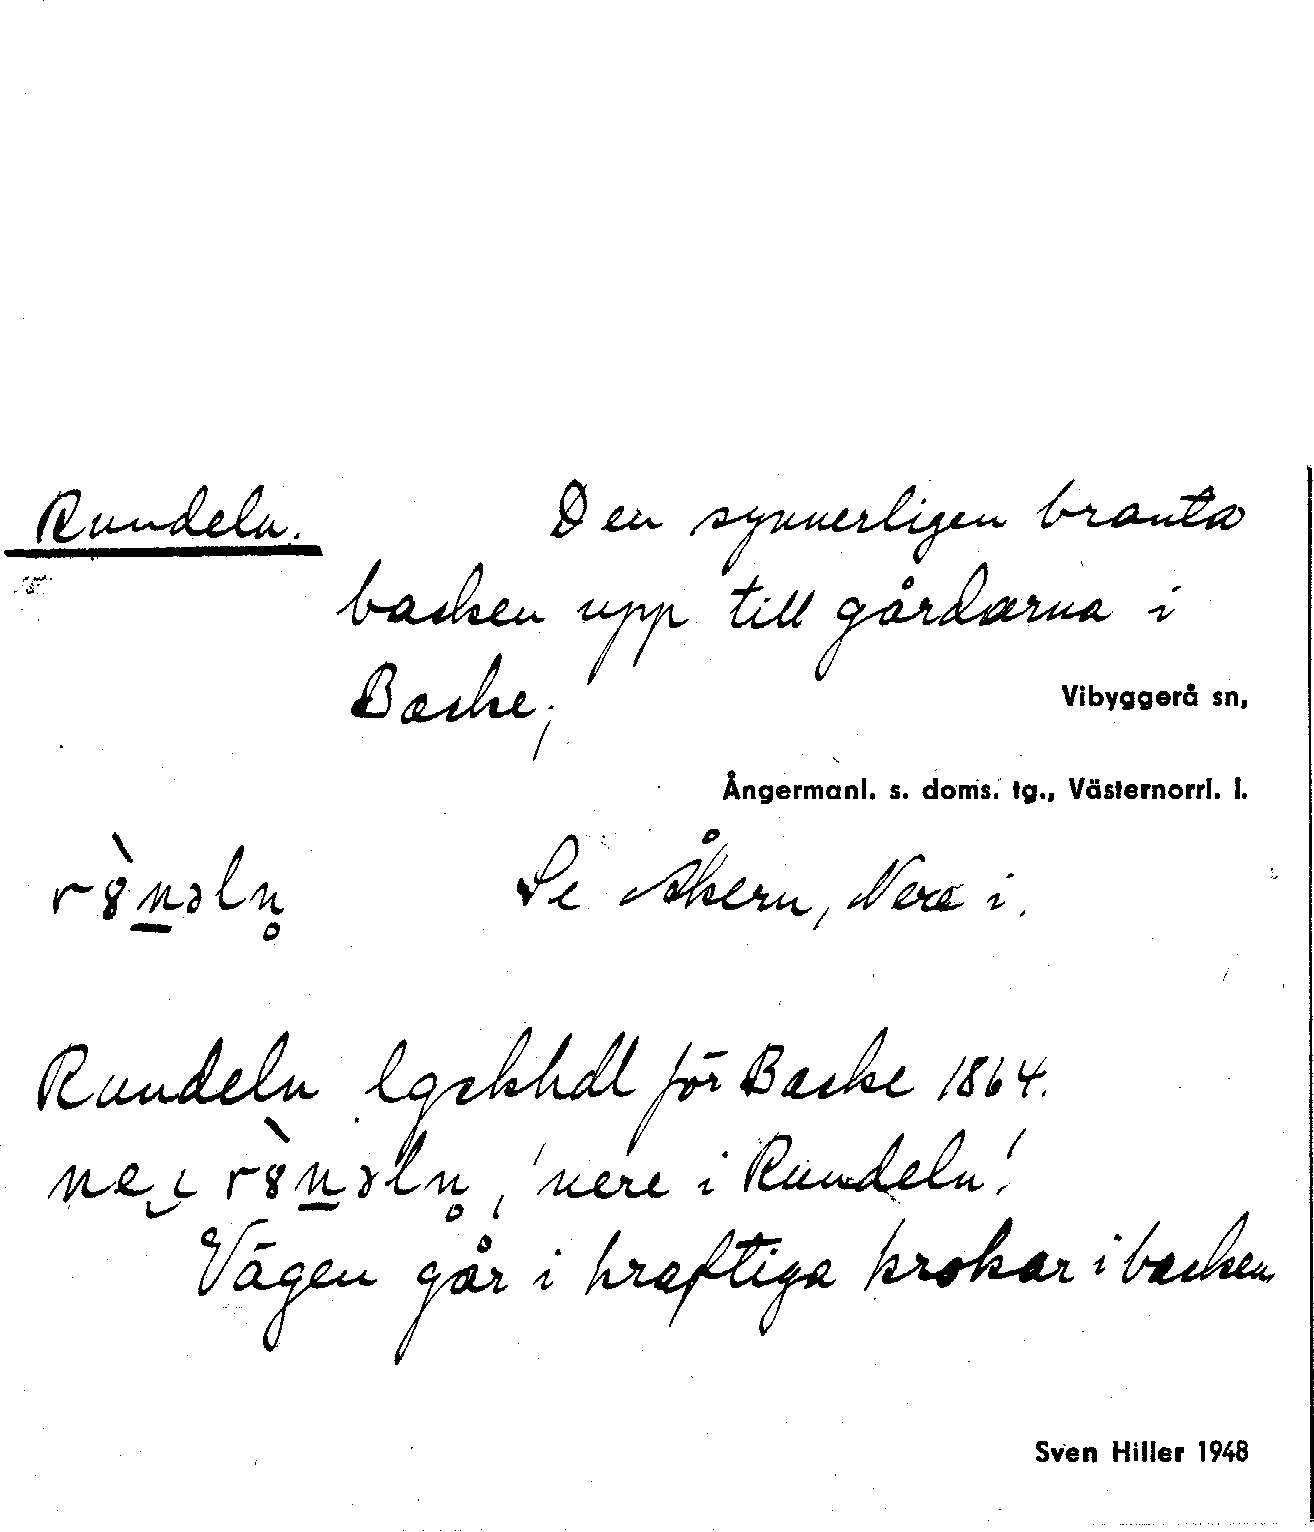 Rundeln. Den synnerligen branta
backen upp till gårdarna i
Backe;
Vibyggerå sn,
Ångermanl. s. doms. tg., Västernorrl. l.
r8̀n̲əln̥ Se Åkern, Nere i.
Rundeln lgskhdl för Backe 1864.
ne i r8̀n̲əln̥, 'nere i Rundeln'.
Vägen går i kraftiga krokar i backen.
Sven Hiller 1948